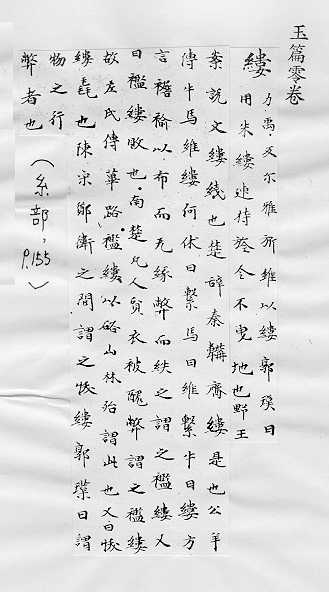 玉篇零卷
縷 力禹反尒雅所維以縷郭璞曰
用朱縷連持旒令不曳地也野王
案說文縷綫也楚辭秦韝齊縷是也公羊
傳牛馬維縷何休曰繫馬曰維繫牛曰縷方
言襜褕以布而无緣弊而紩之謂之襤縷又
曰襤縷敗也南楚凡人貧衣被醜弊謂之襤縷
故左氏傳蓽路襤縷以啓山林殆謂此也又曰
縷毳也陳宋鄭衛之間謂之縷郭璞曰謂
物之行
弊者也
（糸部，P.155）